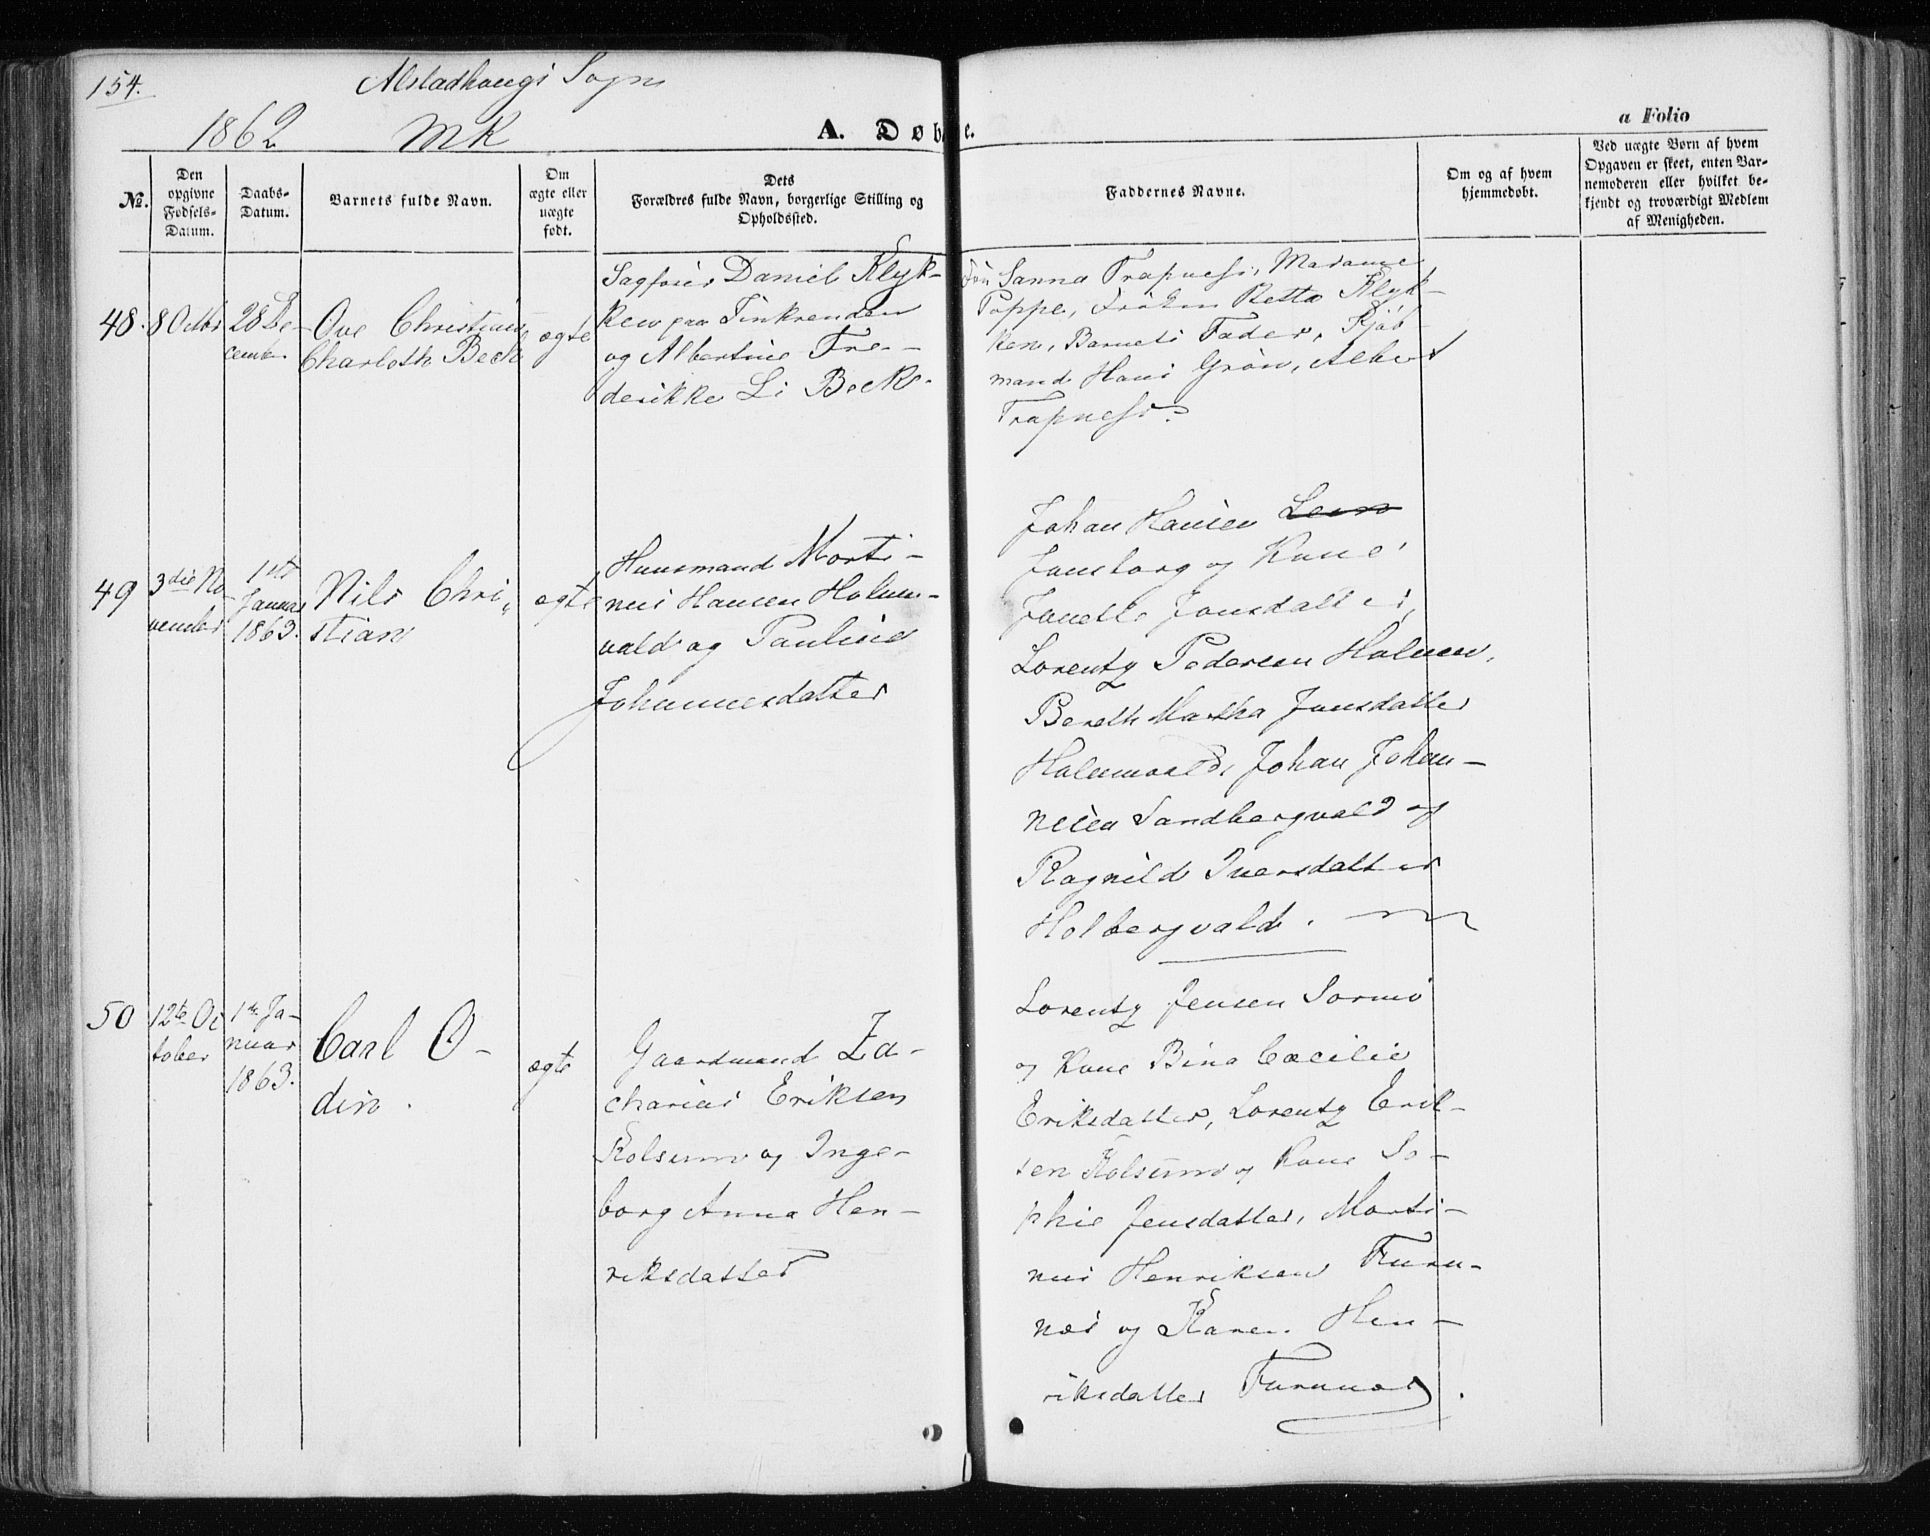 154.
Alstadhaugs Sogn
1862 MK
A. Døbte.
a Folio
No.
Den opgivne Fødsels-Datum.
Daabs-Datum.
Barnets fulde Navn.
Om ægte eller uægte født.
Dets Forældres fulde Navn, borgerlige Stilling og Opholdssted.
Faddernes Navne.
Om og af hvem hjemmedøbt.
Ved uægte Børn af hvem Opgaven er skeet, enten Barnemoderen eller hvilket bekjendt og troværdigt Medlem af Menigheden.
48.
8 Octbr
28 De-
cember
Ove Christian
Charloth Beck
ægte
Sagfører Daniel Klyk-
ken paa
og Albertine Fre-
derikke Beck.
Sanna Trapness, Madame
Poppe, Frøken Klyk-
ken, Barnets Fader, Kjøb-
mand Hans Grøn, Albert
Trapness.
49
3die No-
vember
1ste
Januar
1863.
Nils Chri-
stian
ægte
Huusmand Morti-
nus Hansen Holmn-
vald og Pauline
Johannesdatter
Johan Hansen
og Kone
Janette Jonsdatter,
Lorentz Pedersen Holmen,
Bereth Martha Jonsdatter
Holmnvald, Johan Johan-
nesen Sandbergvald og
Ragnild Iversdatter
Holbergvald.
50
12te Oc
tober
1ste Ja-
nuar
1863.
Carl O-
din.
ægte
Gaardmand Za-
charias Eriksen
Kolsum og Inge-
borg Anna Hen-
riksdatter
Lorentz Jensen Sormo
og Kone Bina Cæcilie
Eriksdatter, Lorentz Erik-
sen Kolsum og Kone So-
phie Jensdatter, Morti-
nus Henriksen Furu-
næs og Karen Hen-
riksdatter Furunæs.